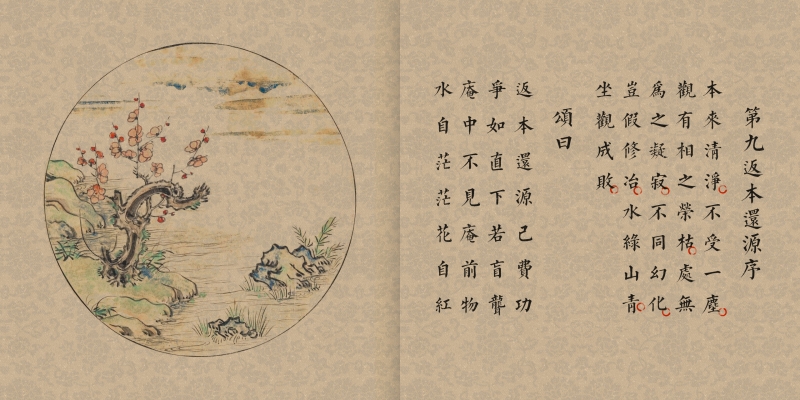 第九返本還源序
本來清淨不受一塵
觀有相之榮枯處無
爲之凝寂不同幻化
豈假修冶水綠山青
坐觀成敗
頌曰
返本還源已費功
爭如直下若盲聾
庵中不見庵前物
水自茫茫花自紅